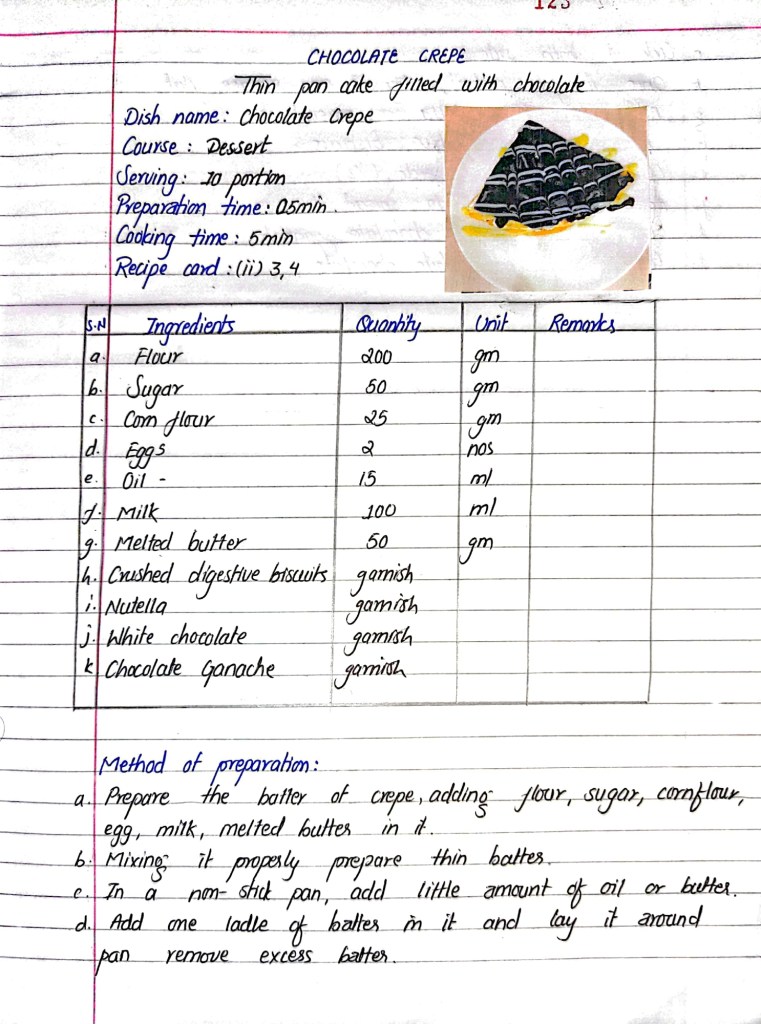 123
CHOCOLATE CREPE
Thin pan cake filled with chocolate
Dish name: Chocolate Crepe
Course: Dessert
Serving: 10 portion
Preparation time: 05min.
Cooking time: 5min
Recipe card: (ii) 3,4
S.N Ingredients Quantity Unit Remarks
a. Flour 200 gm
b. Sugar 50 gm
c. Corn flour 25 gm
d. Eggs 2 nos
e. Oil - 15 ml
f. Milk 100 ml
g. Melted butter 50 gm
h. Crushed digestive biscuits garnish
i. Nutella garnish
j. White chocolate garnish
k Chocolate Ganache garnish
Method of preparation:
a. Prepare the batter of crepe, adding flour, sugar, cornflour,
egg, milk, melted butter in it.
b. Mixing it properly prepare thin batter.
c. In a non-stick pan, add little amount of oil or butter.
d. Add one ladle of batter in it and lay it around
pan remove excess batter.